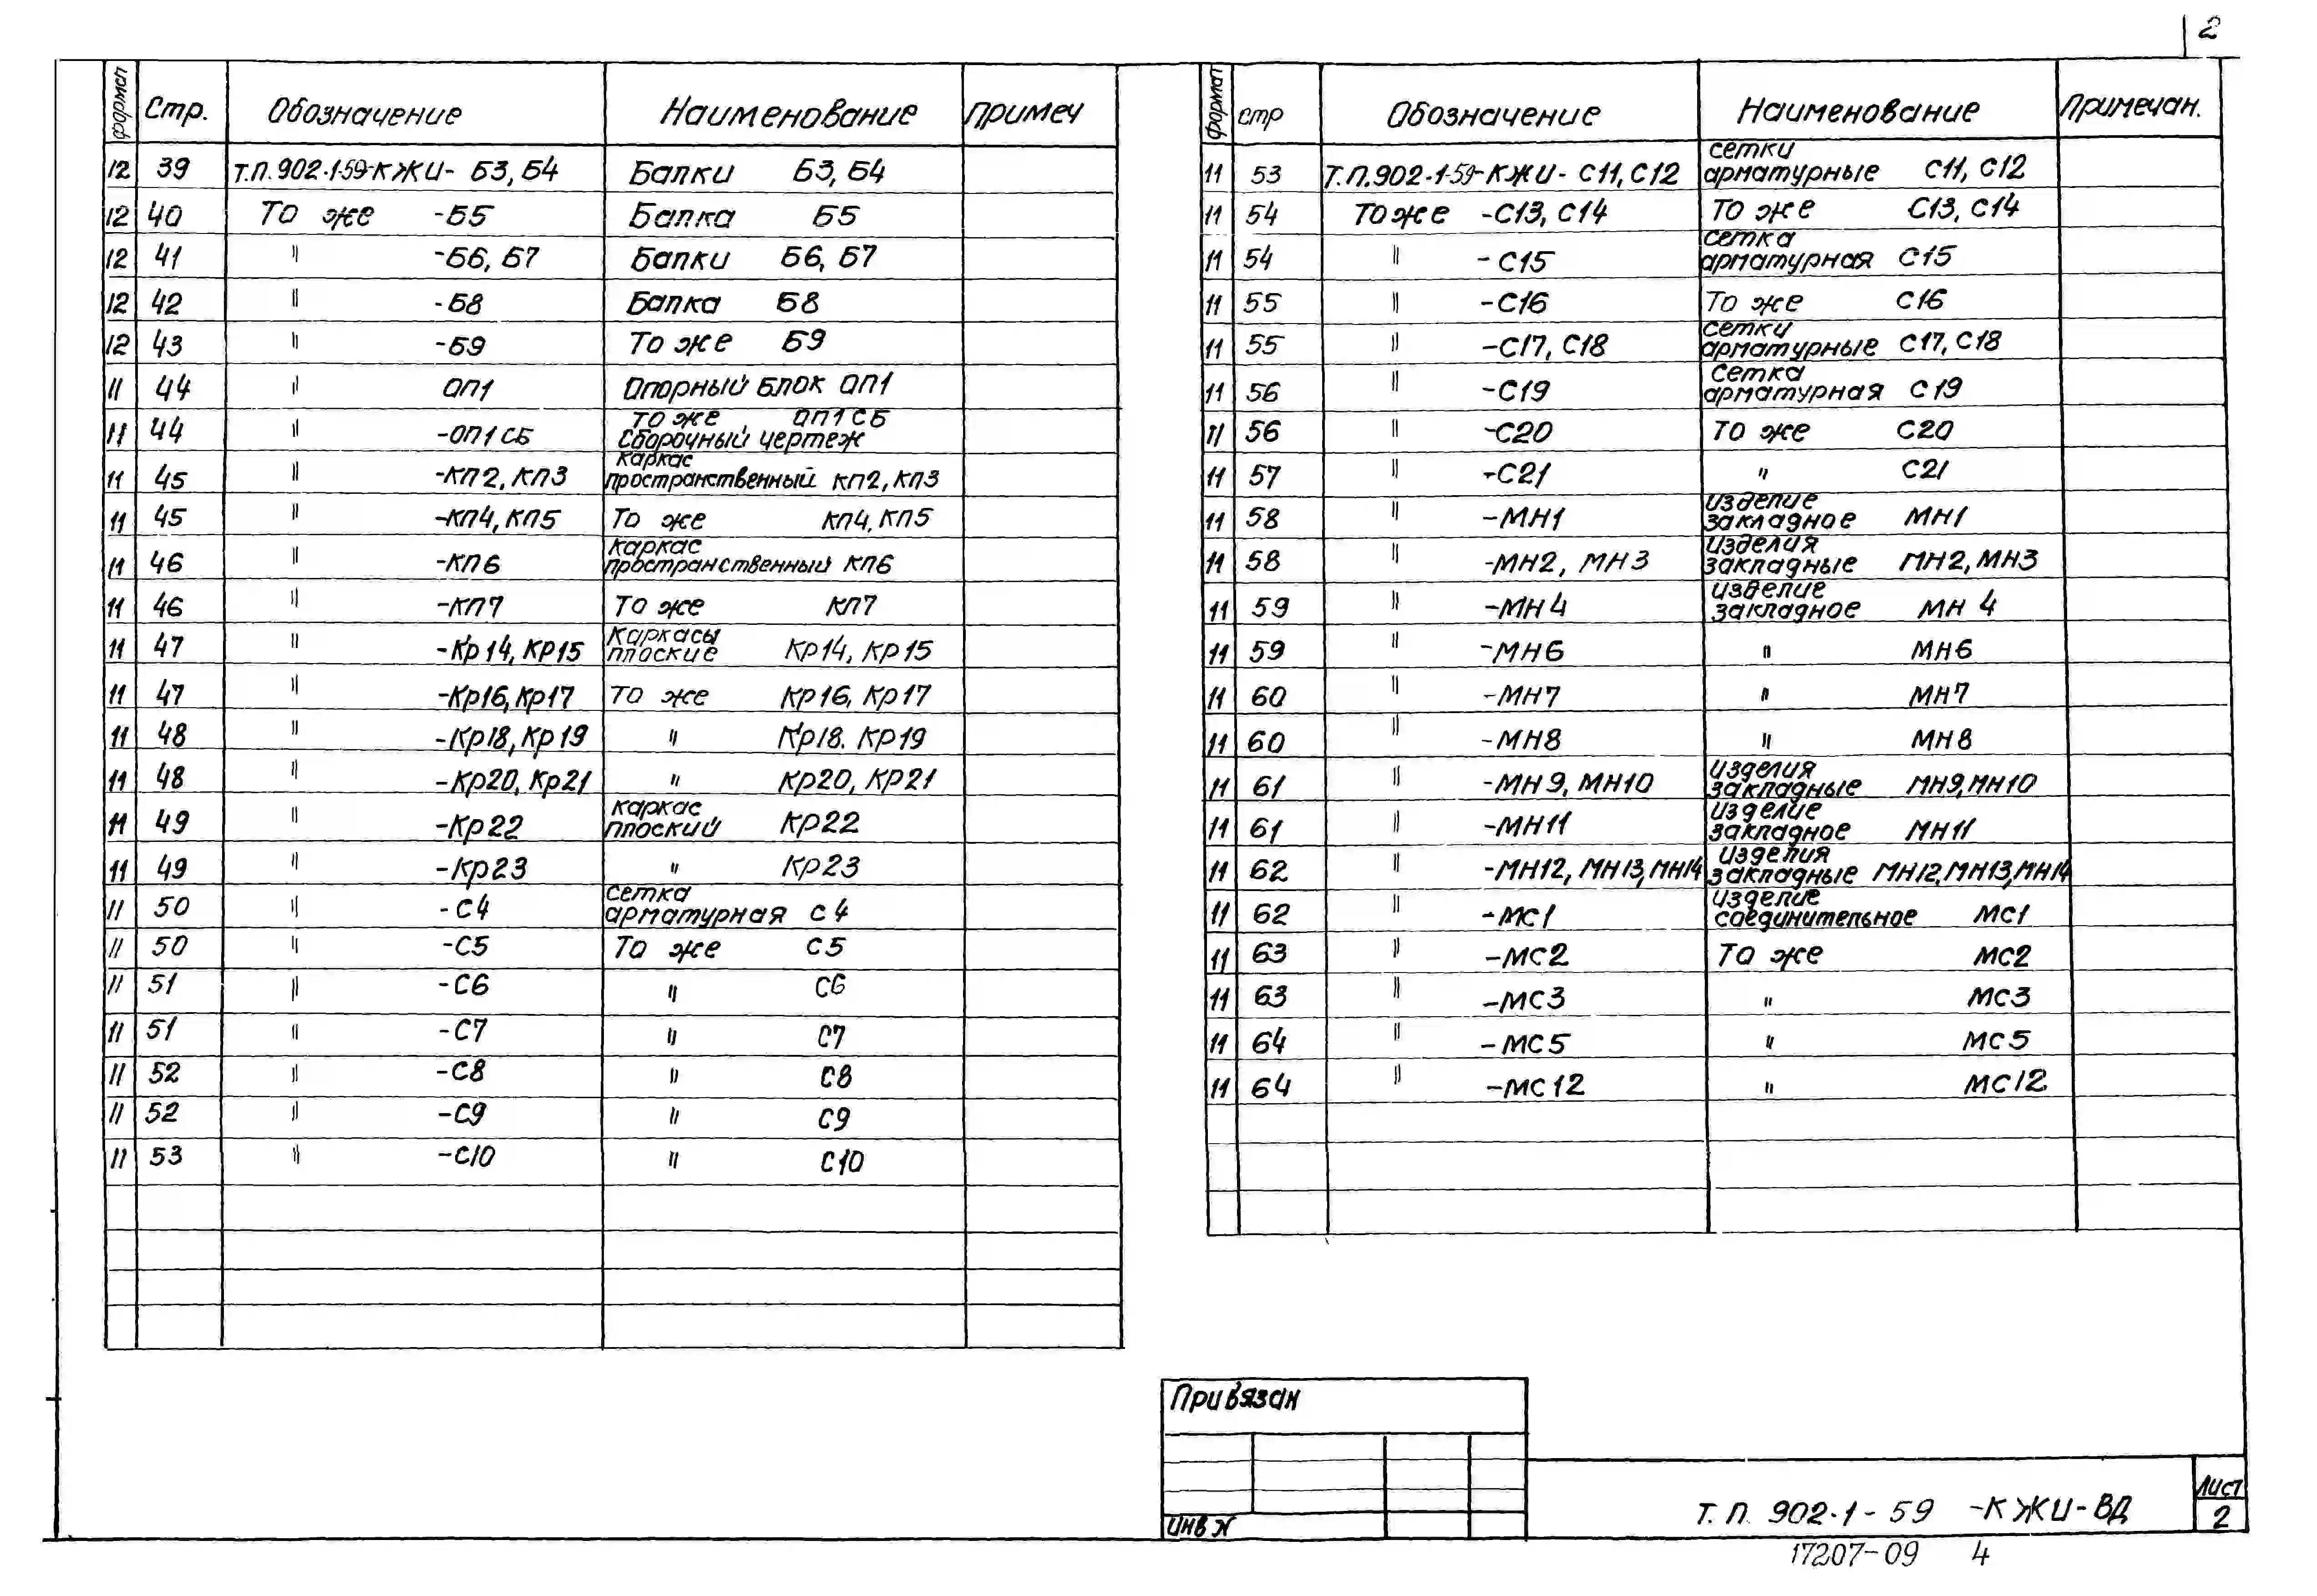 2
формат Стр. Обозначение Наименование Примеч
12 39 Т.П.902-1-59-КЖИ- Б3, Б4 Балки Б3, Б4
12 40 То же -Б5 Балка Б5
12 41 " -Б6, Б7 Балки Б6, Б7
12 42 " -Б8 Балка Б8
12 43 " -Б9 То же Б9
11 44 " ОП1 Опорный блок ОП1
11 44 " -ОП1 СБ То же ОП1 СБ
Сборочный чертеж
11 45 " -КП2, КП3 Каркас
пространственный КП2, КП3
11 45 " -КП4, КП5 То же КП4, КП5
11 46 " -КП6 Каркас
пространственный КП6
11 46 " -КП7 То же КП7
11 47 " -Кр14, КР15 Каркасы
плоские Кр14, Кр15
11 47 " -Кр16, Кр17 То же Кр16, Кр17
11 48 " -Кр18, Кр19 " Кр18. Кр19
11 48 " -Кр20, Кр21 " Кр20, Кр21
11 49 " -Кр22 Каркас
плоский Кр22
11 49 " -Кр23 " Кр23
11 50 " -С4 Сетка
арматурная С4
11 50 " -С5 То же С5
11 51 " -С6 " С6
11 51 " -С7 " С7
11 52 " -С8 " С8
11 52 " -С9 " С9
11 53 " -С10 " С10
формат стр Обозначение Наименование Примечан.
11 53 Т.П.902-1-59-КЖИ- С11, С12 Сетки
арматурные С11, С12
11 54 То же -С13, С14 То же С13, С14
11 54 " -С15 Сетка
арматурная С15
11 55 " -С16 То же С16
11 55 " -С17, С18 Сетки
арматурные С17, С18
11 56 " -С19 Сетка
арматурная С19
11 56 " -С20 То же С20
11 57 " -С21 " С21
11 58 " -МН1 Изделие
закладное МН1
11 58 " -МН2, МН3 Изделия
закладные МН2, МН3
11 59 " -МН4 Изделие
закладное МН 4
11 59 " -МН6 " МН6
11 60 " -МН7 " МН7
11 60 " -МН8 " МН8
11 61 " -МН9, МН10 Изделия
закладные МН9, МН10
11 61 " -МН11 Изделие
закладное МН11
11 62 " -МН12, МН13, МН14 Изделия
закладные МН12, МН13, МН14
11 62 " -МС1 Изделие
соединительное МС1
11 63 " -МС2 То же МС2
11 63 " -МС3 " МС3
11 64 " -МС5 " МС5
11 64 " -МС12 " МС12
Привязан
Инв N
Т. П. 902-1-59 -КЖИ-ВД
Лист
2
17207-09 4